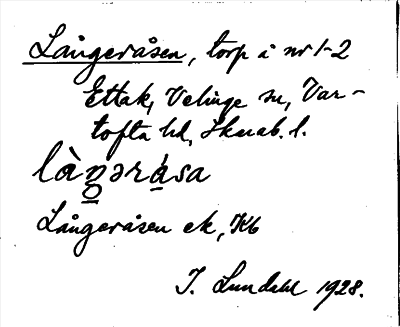 Långeråsen, torp å nr 1-2
Ettak, Velinge sn, Var-
tofta hd, Skarab. l.
là̱ŋəra̱sa
Långeråsen ek, Kb
I. Lundahl 1928.